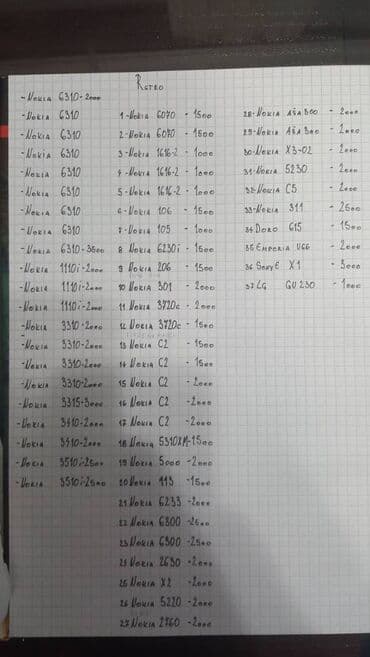 Retro
-Nokia 6310-2000
-Nokia 6310
-Nokia 6310
-Nokia 6310
-Nokia 6310
-Nokia 6310
-Nokia 6310
-Nokia 6310
-Nokia 6310-3500
-Nokia 1110i-2000
-Nokia 1110i-2000
-Nokia 1110i-2000
-Nokia 3310-2000
-Nokia 3310-2000
-Nokia 3310-2000
-Nokia 3310-2000
-Nokia 3315-3000
-Nokia 3410-2000
-Nokia 3410-2000
-Nokia 3510i-2500
-Nokia 3510i-2500
1-Nokia 6070 -1500
2-Nokia 6070 -1500
3-Nokia 1616-2 -1000
4-Nokia 1616-2 -1000
5-Nokia 1616-2 -1000
6-Nokia 106 -1500
7-Nokia 105 -1000
8 Nokia 6230i -1500
9 Nokia 206 -1500
10 Nokia 301 -2000
11 Nokia 3720c -2000
12 Nokia 3720c -1500
13 Nokia C2 -1500
14 Nokia C2 -1500
15 Nokia C2 -2000
16 Nokia C2 -2000
17 Nokia C2 -2000
18 Nokia 5310XM-1500
19 Nokia 5000 -2000
20 Nokia 113 -1500
21 Nokia 6233 -2000
22 Nokia 6300 -2500
23 Nokia 6300 -2500
24 Nokia 2630 -2000
25 Nokia X2 -2000
26 Nokia 5220 -2000
27 Nokia 2760 -2000
28-Nokia Aša 300 - 2000
29-Nokia Aša 300 - 2000
30-Nokia X3-02 - 2000
31-Nokia 5230 - 2000
32-Nokia C5 - 2000
33-Nokia 311 - 2500
34 Doro 615 - 1500
35 Emporia V66 - 2000
36 Sony E X1 - 3000
37 LG GU 230 - 1000